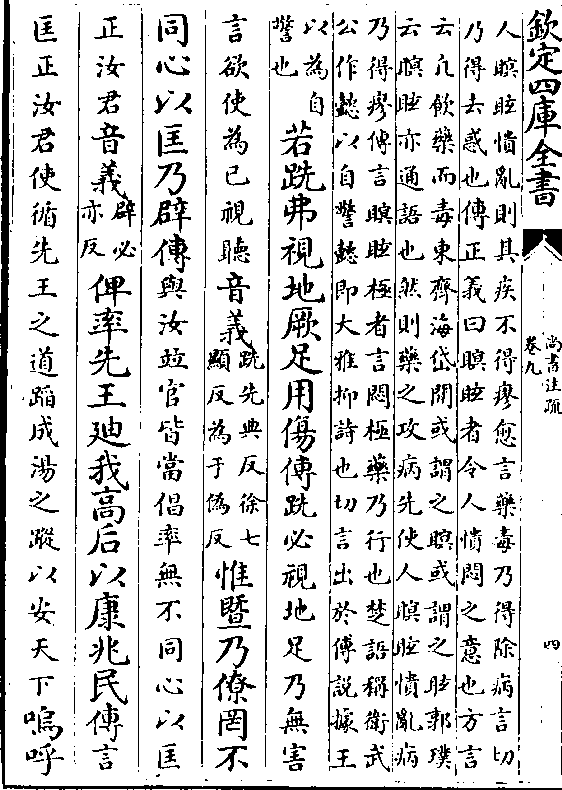 欽定四庫全書
尚書注疏
卷九
四
人瞑眩憒亂則其疾不得瘳愈言藥毒乃得除病言切
乃得去惑也傳正義曰瞑眩者令人憒悶之意也方言
云凡飲藥而毒東齊海岱間或謂之瞑或謂之眩郭璞
云瞑眩亦通語也然則藥之攻病先使人瞑眩憒亂病
乃得瘳傳言瞑眩極者言悶極藥乃行也楚語稱衛武
公作懿以自警懿即大雅抑詩也切言出於傅說據王
以為自
警也
若跣弗視地厥足用傷傳跣必視地足乃無害
言欲使為已視聽音義跣先典反徐七
顯反為于偽反
惟暨乃僚罔不
同心以匡乃辟傳與汝並官皆當倡率無不同心以匡
正汝君音義辟必
亦反
俾率先王廸我高后以康兆民傳言
匡正汝君使循先王之道蹈成湯之蹤以安天下嗚呼